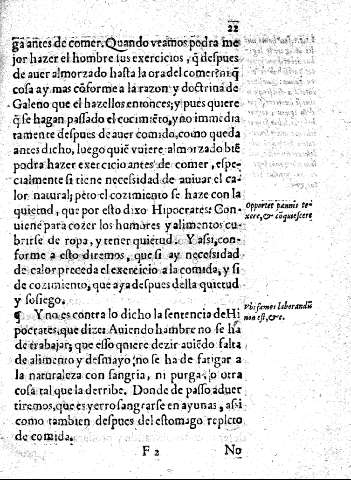 22
ga antes de comer. Quando veamos podra me
jor hazer el hombre sus exercicios, q̃ despues
de auer almorzado hasta la ora del comer: ni q̃
cosa ay mas cõforme a la razon y doctrina de
Galeno que el hazellos entonces; y pues quiere
q̃ se hagan passado el cucimiẽto, y no immedia
tamente despues de auer comido, como queda
antes dicho, luego quiẽ vuiere almorzado biẽ
podra hazer exercicio antes de comer, espe-
cialmente si tiene necessidad de auiuar el ca-
lor natural; pero el cozimiento se haze con la
quietud, que por esto dixo Hipocrates: Con-
uiene para cozer los humores y alimentos cu-
brirse de ropa, y tener quietud. Y assi, con-
forme a esto diremos, que si ay necessidad
de calor preceda el exercicio a la comida, y si
de cozimiento, que aya despues della quietud
y sosiego.
¶ Y no es contra lo dicho la sentencia de Hi
pocrates, que dize: Auiendo hambre no se ha
de trabajar, que esso quiere dezir auiẽdo falta
de alimento y desmayo, no se ha de fatigar a
la naturaleza con sangria, ni purga, o otra
cosa tal que la derribe. Donde de passo aduer
tiremos, que es yerro sangrarse en ayunas, assi
como tambien despues del estomago repleto
de comida.
F 2 No
Oportet pannis te-
xere, & cõquiescere
Vbi fames laborandũ
non est, &c.